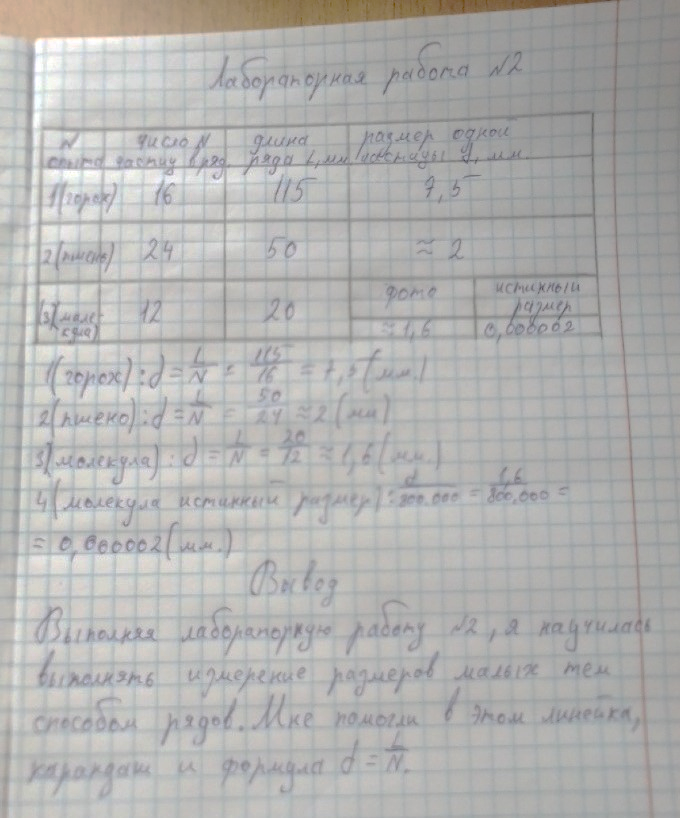 Лабораторная работа №2
N опыта число N частиц в ряд. длина ряда L, мм. размер одной частицы d, мм.
1(горох) 16 115 7,5
2(пшено) 24 50 ≈ 2
фото истинный размер
3(моле-кула) 12 20 ≈ 1,6 0,000002
1(горох): d = L/N = 115/16 = 7,5 (мм.)
2(пшено): d = L/N = 50/24 ≈ 2 (мм)
3(молекула): d = L/N = 20/12 ≈ 1,6 (мм.)
4(молекула истинный размер) = d/800.000 = 1,6/800,000 =
= 0,000002 (мм.)
Вывод
Выполняя лабораторную работу №2, я научилась
выполнять измерение размеров малых тел
способом рядов. Мне помогли в этом линейка,
карандаш и формула d = L/N.